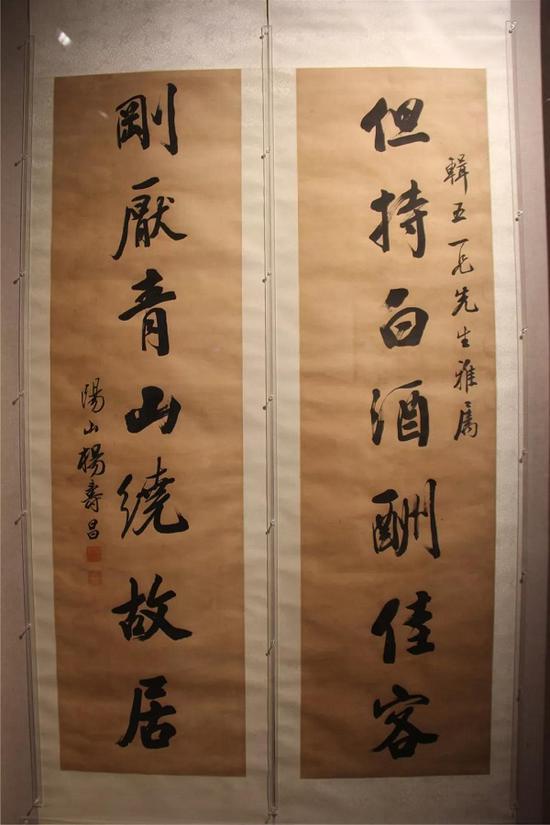 輯五先生雅属
但持白酒酬佳客
剛厭青山繞故居
陽山楊壽昌